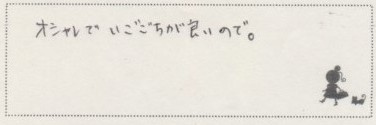 オシャレで いごごちが良いので。